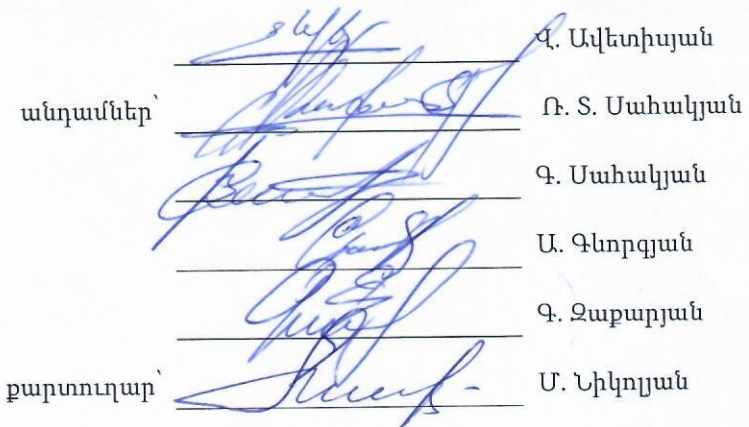 Վ. Ավետիսյան
անդամներ՝ Ռ. Տ. Սահակյան
Գ. Սահակյան
Ա. Գևորգյան
Գ. Զաքարյան
քարտուղար՝ Մ. Նիկոլյան